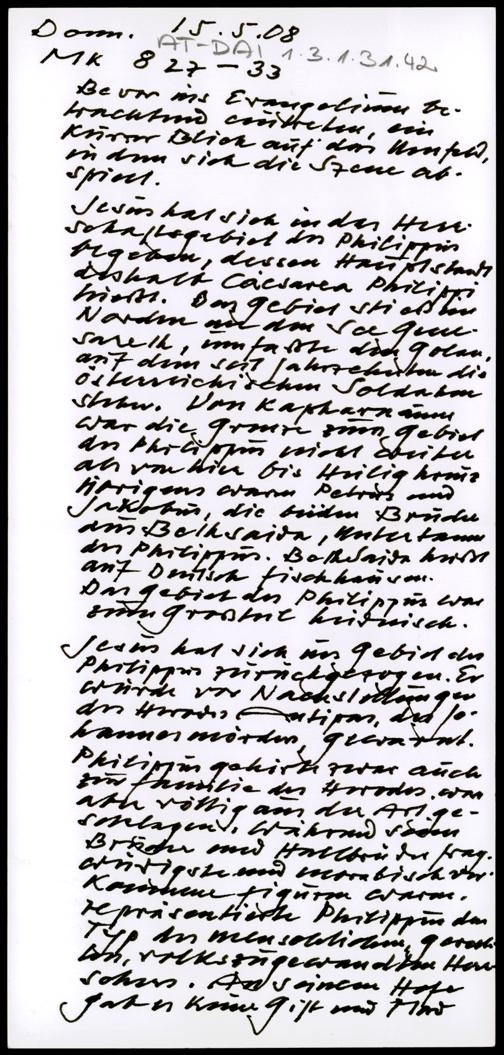 Donn. 15.5.08
AT-DAI 1.3.1.31.42
Mk 8 27-33
Bevor ins Evangelium be-
trachtend eintreten, ein
kurzer Blick auf das Umfeld,
in dem sich die Szene ab-
spielt.
Jesus hat sich in das Herr-
schaftsgebiet des Philippus
begeben, dessen Hauptstadt
deshalb Caesarea Philippi
hieß. Das Gebiet stieß im
Norden an den See Gene-
sareth, umfaßte den Golan,
auf dem seit Jahrzehnten die
österreichischen Soldaten
stehen. Von Kapharnaum
war die Grenze zum Gebiet
des Philippus nicht weiter
als von hier bis Heiligkreuz
Übrigens waren Petrus und
Jakobus, die beiden Brüder
aus Bethsaida, Untertanen
des Philippus. Bethsaida heißt
auf Deutsch Fischhausen.
Das Gebiet des Philippus war
zum Großteil heidnisch.
Jesus hat sich ins Gebiet des
Philippus zurückgezogen. Er
wurde vor Nachstellungen
des Herodes Antipas, des Jo-
hannesmörders, gewarnt.
Philippus gehörte zwar auch
zur Familie des Herodes, war
aber völlig aus der Art ge-
schlagen. Während seine
Brüder und Halbbrüder frag-
würdigste und moralisch ver-
kommene Figuren waren,
repräsentierte Philippus den
Typ des menschlichen, gerech-
ten, volkszugewandten Herr-
schers. An seinem Hofe
gab es keine Gift und Mord